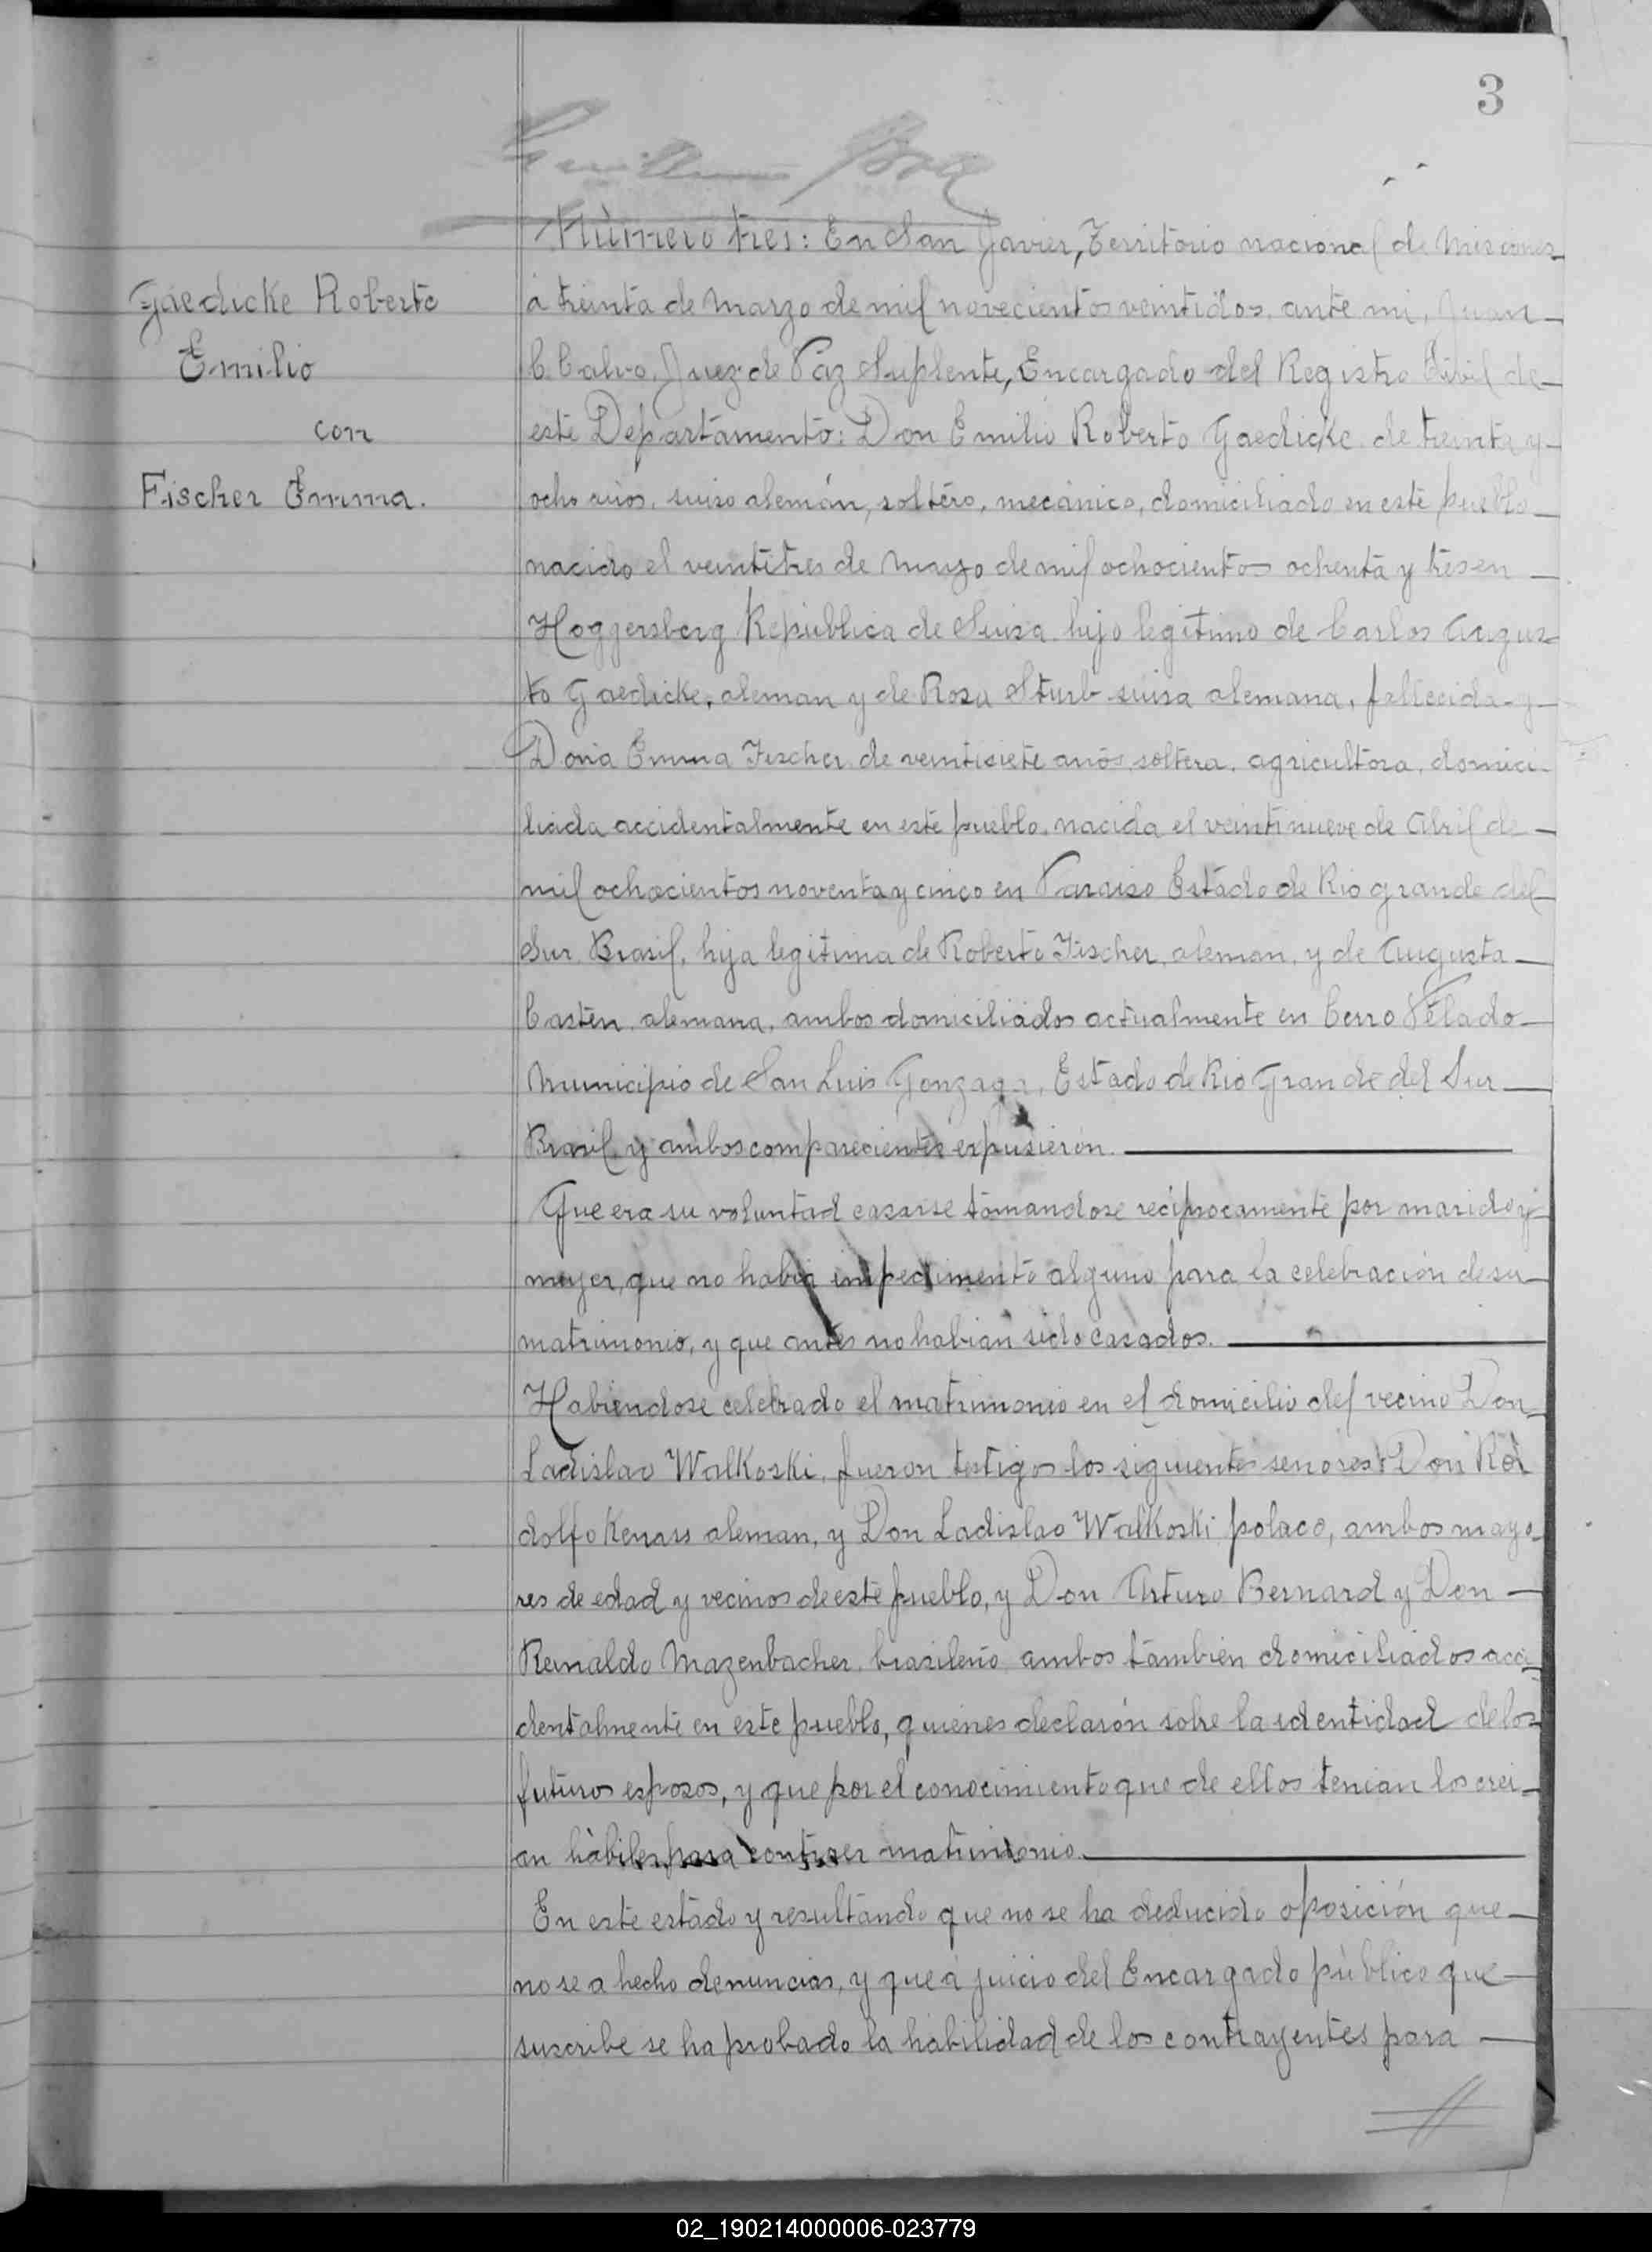 3
Número tres: En San Javier, Territorio nacional de Misiones
Gaedicke Roberto
Emilio
con
Fischer Emma.
á treinta de Marzo de mil novecientos veintidos, ante mi, Juan
C. Calvo, Juez de Paz Suplente, Encargado del Registro Civil de
este Departamento: Don Emilio Roberto Gaedicke de treinta y
ocho años, suizo alemán, soltero, mecánico, domiciliado en este pueblo
nacido el veintitres de Mayo de mil ochocientos ochenta y tres en
Hoggersberg República de Suiza hijo legitimo de Carlos Augus
to Gaedicke, aleman y de Rosa Sturb suiza alemana, fallecida y
Doña Emma Fischer de veintisiete años soltera, agricultora, domici
liada accidentalmente en este pueblo, nacida el veintinueve de Abril de
mil ochocientos noventa y cinco en Paraiso Estado de Rio grande del
Sur Brasil, hija legitima de Roberto Fischer, aleman, y de Augusta
Casten, alemana, ambos domiciliados actualmente en Cerro Pelado
Municipio de San Luis Gonzaga, Estado de Rio Grande del Sur
Brasil, y ambos comparecientes expusieron.
Que era su voluntad casarse tomandose reciprocamente por marido y
mujer, que no habia impedimento alguno para la celebración de su
matrimonio, y que antes no habian sido casados.
Habiendose celebrado el matrimonio en el domicilio del vecino Don
Ladislao Walkoski, fueron testigos los siguientes señores: Don Ro
dolfo Kenass aleman, y Don Ladislao Walkoski polaco, ambos mayo
res de edad y vecinos de este pueblo, y Don Arturo Bernard y Don
Reinaldo Mazenbacher brasileño ambos tambien domiciliados acci
dentalmente en este pueblo, quienes declarón sobre la identidad de los
futuros esposos, y que por el conocimiento que de ellos tenian los crei
an hàbiles para contraer matrimonio.
En este estado y resultando que no se ha deducido oposición que
no se a hecho denuncias, y que á juicio del Encargado pùblico que
suscribe se ha probado la habilidad de los contrayentes para
02_190214000006-023779